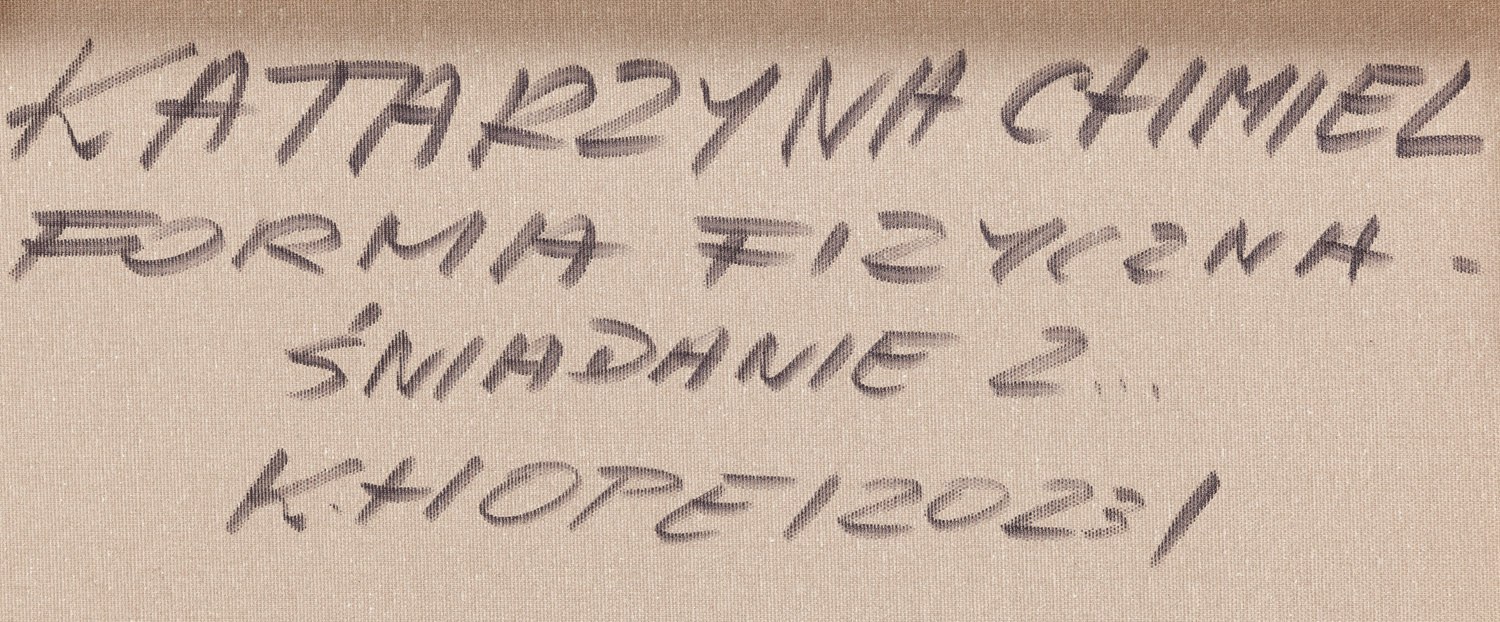 KATARZYNA CHMIEL
FORMA FIZYCZNA -
ŚNIADANIE Z...
K.HOPE /2023/